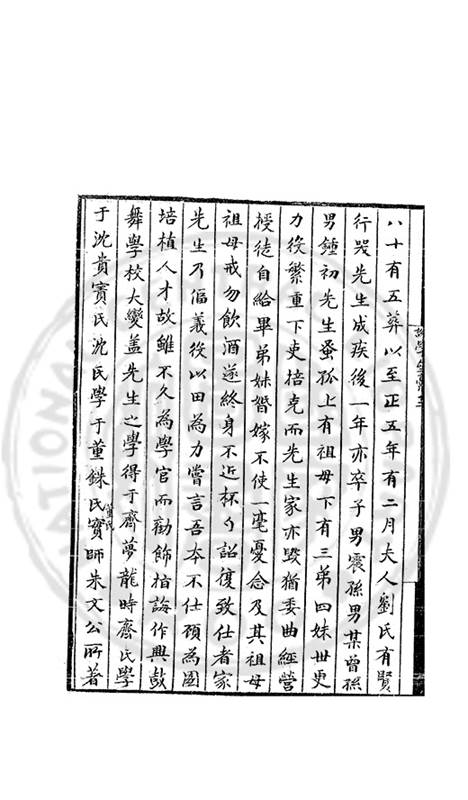 八十有五葬以至正五年有二月夫人劉氏有賢
行哭先生成疾後一年亦卒子男震孫男某曾孫
男鍾初先生蚤孤上有祖母下有三弟四妹世更
力役繁重下吏掊克而先生家亦毀猶委曲經營
授徒自給畢弟妹婚嫁不使一毫憂念及其祖母
祖母戒勿飲酒遂終身不近杯勺詔復致仕者家
先生乃倡義役以田為力嘗言吾本不仕顧為國
培植人才故雖不久為學官而勸飭指誨作興鼓
舞學校大變盖先生之學得于齊夢龍時齊氏學
于沈貴寶氏沈氏學于董銖氏董氏寶師朱文公所著